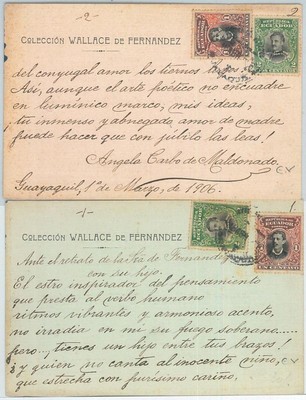 -2-
2
COLECCIÓN WALLACE DE FERNANDEZ
REPUBLICA DEL ECUADOR
del conyugal amor los tiernos lazos.
Así, aunque el arte poético no encuadre
en lumínico marco, mis ideas,
¡tu inmenso y abnegado amor de madre
puede hacer que con júbilo las leas!
Angela Carbo de Maldonado.
Guayaquil, 1º de Marzo, de 1906.
-1-
1
COLECCIÓN WALLACE DE FERNANDEZ
ECUADOR
Ante el retrato de la Sra de Fernandez
con su hijo.
El estro inspirador del pensamiento
que presta al verbo humano
ritmos vibrantes y armonioso acento,
no irradia en mi su fuego soberano.....
pero... ¡tienes un hijo entre tus brazos!
y quien no canta al inocente niño,
que estrecha con purísimo cariño,